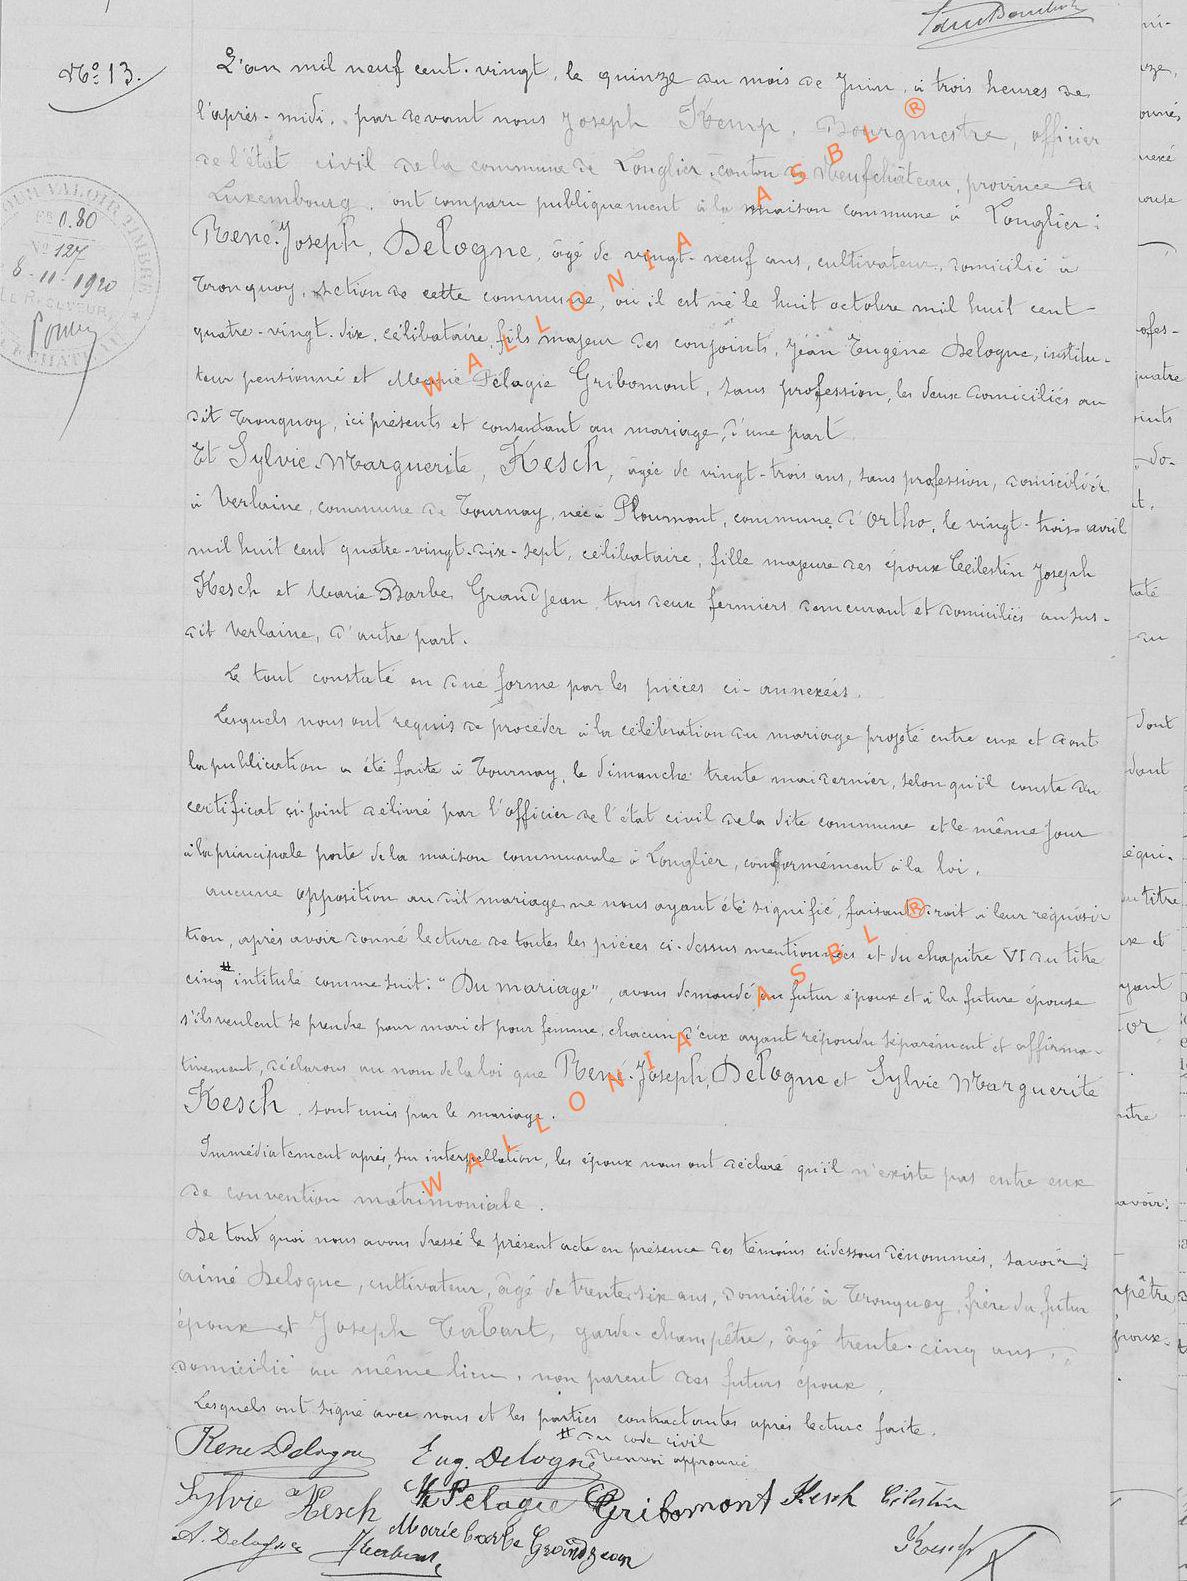 N° 13.
L'an mil neuf cent vingt, le quinze du mois de Juin, à trois heures de
l'après-midi, par devant nous Joseph Kemp, Bourgmestre, officier
de l'état civil de la commune de Longlier, canton de Neufchâteau, province de
Luxembourg, ont comparu publiquement à la maison commune à Longlier :
René-Joseph, Delogne, âgé de vingt-neuf ans, cultivateur, domicilié à
Tronquoy, section de cette commune, où il est né le huit octobre mil huit cent-
quatre-vingt-dix, célibataire, fils majeur des conjoints, Jean Eugène Delogne, institu-
teur pensionné et Marie Pélagie Gribomont, sans profession, les deux domiciliés au
dit Tronquoy, ici présents et consentant au mariage, d'une part
Et Sylvie-Marguerite, Kesch, âgée de vingt-trois ans, sans profession, domiciliée
à Verlaine, commune de Tournay, née à Ploumont, commune d'Ortho, le vingt-trois avril
mil huit cent quatre-vingt-dix-sept, célibataire, fille majeure des époux Célestin Joseph
Kesch et Marie Barbe Grandjean, tous deux fermiers demeurant et domiciliés au sus-
dit Verlaine, d'autre part.
Le tout constaté en due forme par les pièces ci-annexées.
Lesquels nous ont requis de procéder à la célébration du mariage projeté entre eux et dont
la publication a été faite à Tournay, le dimanche trente mai dernier, selon qu'il conste du
certificat ci-joint délivré par l'officier de l'état civil de la dite commune et le même jour
à la principale porte de la maison communale à Longlier, conformément à la loi.
Aucune opposition au dit mariage ne nous ayant été signifié, faisant droit à leur réquisi-
tion, après avoir donné lecture de toutes les pièces ci-dessus mentionnées et du chapitre VI du titre
cinq # intitulé comme suit : "Du mariage", avons demandé au futur époux et à la future épouse
s'ils veulent se prendre pour mari et pour femme, chacun d'eux ayant répondu séparément et affirma-
tivement, déclarons au nom de la loi que René-Joseph, Delogne et Sylvie Marguerite
Kesch, sont unis par le mariage.
Immédiatement après, sur interpellation, les époux nous ont déclaré qu'il n'existe pas entre eux
de convention matrimoniale.
De tout quoi nous avons dressé le présent acte en présence des témoins cidessous dénommés, savoir :
Aimé Delogne, cultivateur, âgé de trente six ans, domicilié à Tronquoy, frère du futur
époux et Joseph Tabart, garde-champêtre, âgé trente-cinq ans,
domicilié au même lieu, non parent des futurs époux.
Lesquels ont signé avec nous et les parties contractantes après lecture faite.
# du code civil
renvoi approuvé
René Delogne Eug. Delogne
Sylvie Kesch M Pélagie Gribomont Kesch Célestin
A. Delogne Marie barbe Grandjean
POUR VALOIR TIMBRE
Fr 0.80
N° 127
8-11-1920
LE RECEVEUR
WALLONIA ASBL ®
WALLONIA ASBL ®